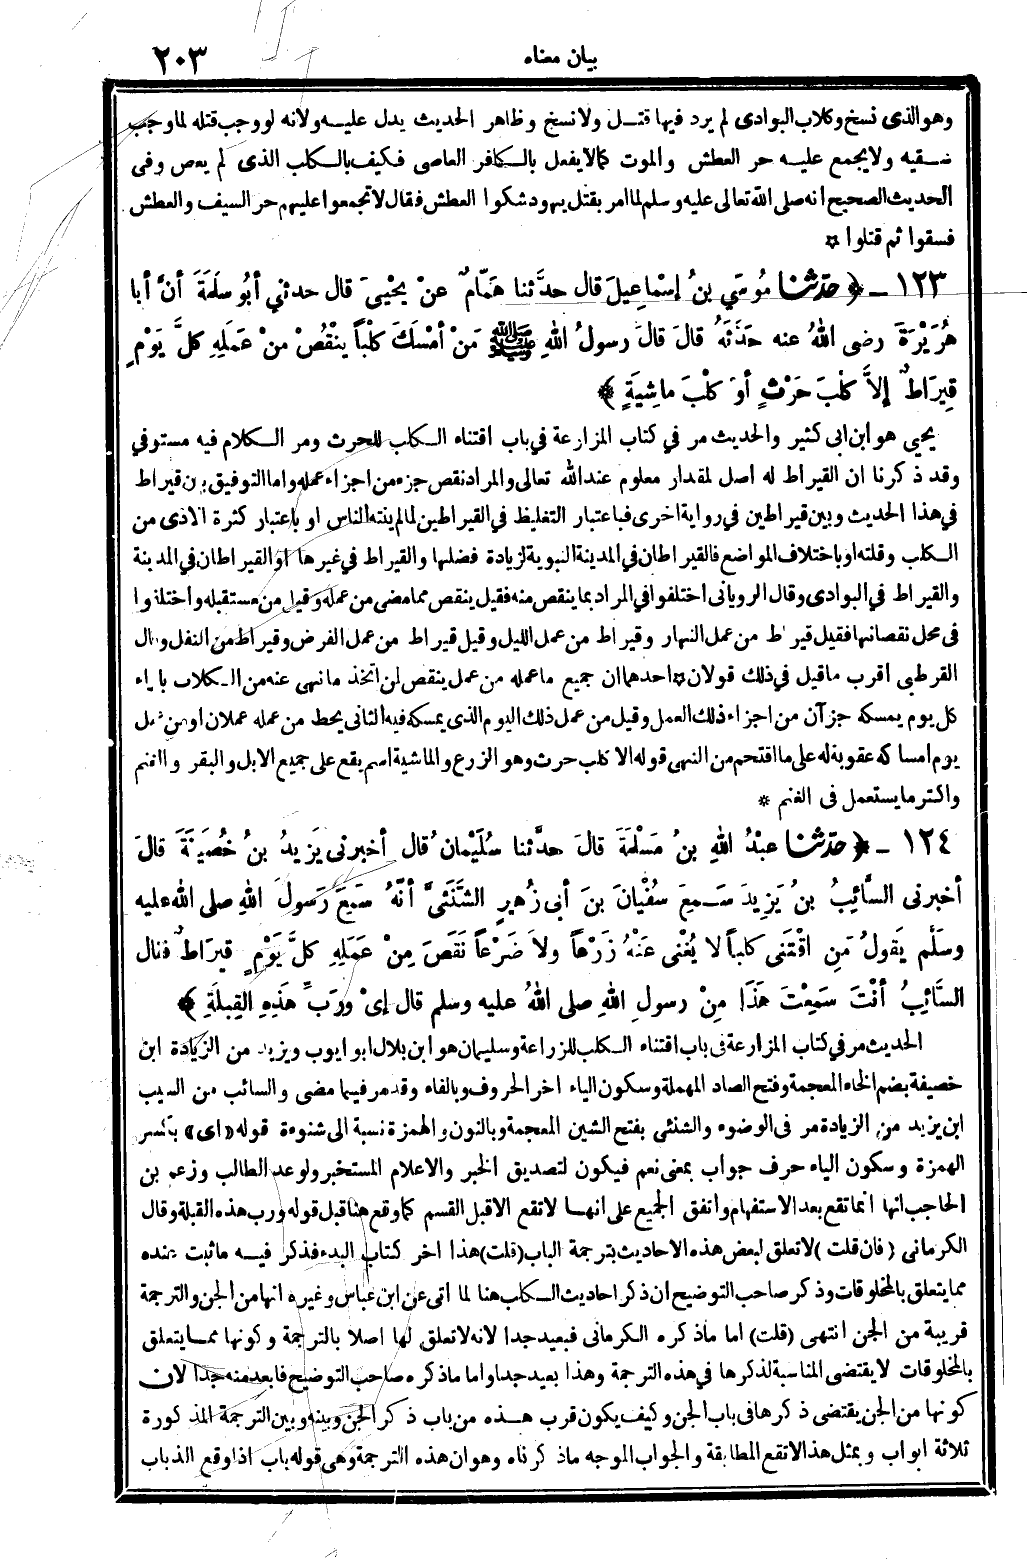 بيان معناه ٢٠٣
وهو الذى نسخ وكلاب البوادى لم يرد فيها قتل ولا نسخ وظاهر الحديث يدل عليه ولانه لو وجب قتله لما وجب
سقيه ولا يجمع عليه حر العطش والموت كما لا يفعل بالكافر العاصى فكيف بالكلب الذى لم يعص وفى
الحديث الصحيح انه صلى الله تعالى عليه وسلم لما امر بقتل يهود شكوا العطش فقال لا تجمعوا عليهم حر السيف والعطش
فسقوا ثم قتلوا ۞
١٢٣ ــ ﴿ حدّثنا مُوسَي بنُ إسْماعِيلَ قال حدَّثنا هَمّامٌ عنْ يحْيىَ قال حدثني أبُو سلَمَةَ أنَّ أبا
هُرَيْرَةَ رضى اللهُ عنه حَدَّثَهُ قالَ قال رسولُ اللهِ ﷺ مَنْ أمْسَكَ كلْباً ينْقُصْ منْ عَمَلِهِ كلَّ يَوْمٍ
قِيرَاطٌ إلاَّ كلْبَ حَرْثٍ أوَ كلْبَ ماشِيَةٍ ﴾
يحيي هو ابن ابى كثير والحديث مر في كتاب المزارعة في باب اقتناء الكلب للحرث ومر الكلام فيه مستوفي
وقد ذكرنا ان القيراط له اصل لمقدار معلوم عند الله تعالى والمراد نقص جزء من اجزاء عمله واما التوفيق بين قيراط
في هذا الحديث وبين قيراطين في رواية اخرى فباعتبار التغليظ في القيراطين لما لم ينته الناس او باعتبار كثرة الاذى من
الكلب وقلته او باختلاف المواضع فالقيراطان في المدينة النبوية لزيادة فضلها والقيراط في غيرها او القيراطان في المدينة
والقيراط في البوادى وقال الرويانى اختلفوا في المراد بما ينقص منه فقيل ينقص مما مضى من عمله وقيل من مستقبله واختلفوا
فى محل نقصانها فقيل قيراط من عمل النهار وقيراط من عمل الليل وقيل قيراط من عمل الفرض وقيراط من النفل وقال
القرطبى اقرب ما قيل في ذلك قولان ۞ احدهما ان جميع ما عمله من عمل ينقص لمن اتخذ ما نهى عنه من الكلاب بازاء
كل يوم يمسكه جزآن من اجزاء ذلك العمل وقيل من عمل ذلك اليوم الذى يمسكه فيه الثانى يحط من عمله عملان او من عمل
يوم امساكه عقوبة له على ما اقتحم من النهى قوله الا كلب حرث وهو الزرع والماشية اسم يقع على جميع الابل والبقر والغنم
واكثر ما يستعمل فى الغنم *
١٢٤ ــ ﴿ حدّثنا عبْدُ اللهِ بنُ مَسْلَمَةَ قالَ حدَّثنا سُلَيْمانُ قال أخبرنى يَزِيدُ بنُ خُصَيْفَةَ قالَ
أخبرنى السَّائِبُ بنُ يَزِيدَ سَمِعَ سُفْيانَ بنَ أبى زُهيرٍ الشَّنَئىَّ أنّهُ سَمِعَ رَسولَ اللهِ صلى الله عليه
وسلّم يَقولُ مَنِ اقْتَنَى كلباً لا يُغْنى عَنْهُ زَرْعاً ولاَ ضَرْعاً نَقَصَ مِنْ عَمَلِهِ كلَّ يَوْمٍ قيرَاطٌ فقال
السَّائِبُ أنْتَ سَمِعْتَ هَذَا مِنْ رسولِ اللهِ صلى اللهُ عليه وسلم قال إىْ ورَبِّ هَذِهِ القِبلَةِ ﴾
الحديث مر في كتاب المزارعة فى باب اقتناء الكلب للزراعة وسليمان هو ابن بلال ابو ايوب ويزيد من الزيادة ابن
خصيفة بضم الخاء المعجمة وفتح الصاد المهملة وسكون الياء اخر الحروف وبالفاء وقد مر فيما مضى والسائب من السيب
ابن يزيد من الزيادة مر فى الوضوء والشنئى بفتح الشين المعجمة وبالنون والهمزة نسبة الى شنوءة قوله «اى» بكسر
الهمزة وسكون الياء حرف جواب بمعنى نعم فيكون لتصديق الخبر والاعلام المستخبر ولوعد الطالب وزعم بن
الحاجب انها انما تقع بعد الاستفهام واتفق الجميع على انها لا تقع الا قبل القسم كما وقع هنا قبل قوله ورب هذه القبلة وقال
الكرمانى (فان قلت) لا تعلق لبعض هذه الاحاديث بترجمة الباب (قلت) هذا اخر كتاب البدء فذكر فيه ما ثبت عنده
مما يتعلق بالمخلوقات وذكر صاحب التوضيح ان ذكر احاديث الكلب هنا لما اتى عن ابن عباس وغيره انها من الجن والترجمة
قريبة من الجن انتهى (قلت) اما ما ذكره الكرمانى فبعيد جدا لانه لا تعلق لها اصلا بالترجمة وكونها مما يتعلق
بالمخلوقات لا يقتضى المناسبة لذكرها في هذه الترجمة وهذا بعيد جدا واما ما ذكره صاحب التوضيح فابعد منه جدا لان
كونها من الجن يقتضى ذكرها فى باب الجن وكيف يكون قرب هذه من باب ذكر الجن وبينه وبين الترجمة المذكورة
ثلاثة ابواب وبمثل هذا لا تقع المطابقة والجواب الموجه ما ذكرناه وهو ان هذه الترجمة وهى قوله باب اذا وقع الذباب